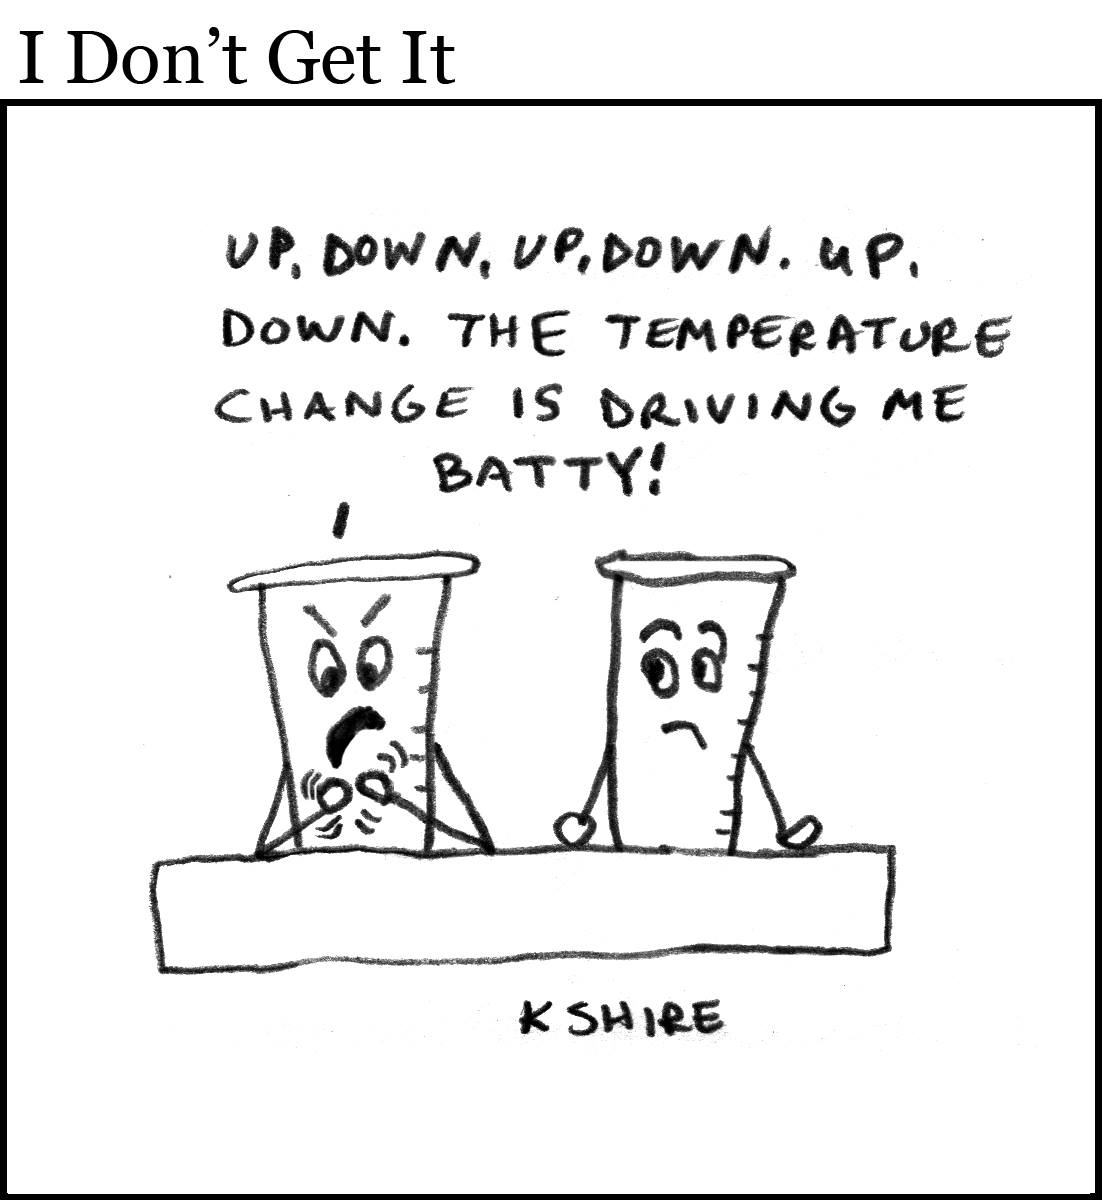 I Don't Get It
UP, DOWN, UP, DOWN. UP.
DOWN. THE TEMPERATURE
CHANGE IS DRIVING ME
BATTY!
K SHIRE